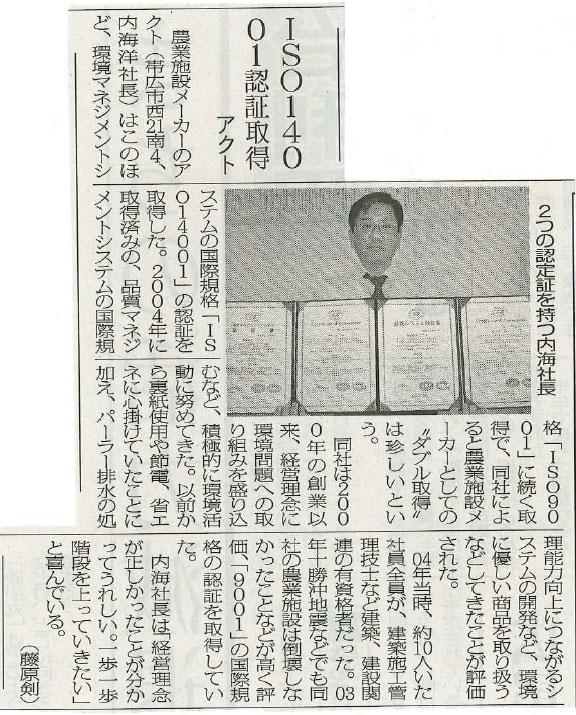 ISO140
01認証取得
アクト
農業施設メーカーのア
クト（帯広市西21南4、
内海洋社長）はこのほ
ど、環境マネジメントシ
ステムの国際規格「IS
O14001」の認証を
取得した。2004年に
取得済みの、品質マネジ
メントシステムの国際規
格「ISO90
01」に続く取
得で、同社によ
ると農業施設メ
ーカーとしての
〝ダブル取得〟
は珍しいとい
う。
同社は200
0年の創業以
来、経営理念に
環境問題への取
り組みを盛り込
むなど、積極的に環境活
動に努めてきた。以前か
ら裏紙使用や節電、省エ
ネに心掛けていたことに
加え、パーラー排水の処
理能力向上につながるシ
ステムの開発など、環境
に優しい商品を取り扱う
などしてきたことが評価
された。
04年当時、約10人いた
社員全員が、建築施工管
理技士など建築、建設関
連の有資格者だった。03
年十勝沖地震などでも同
社の農業施設は倒壊しな
かったことなどが高く評
価、「9001」の国際規
格の認証を取得してい
た。
内海社長は「経営理念
が正しかったことが分か
ってうれしい。一歩一歩
階段を上っていきたい」
と喜んでいる。
（藤原剣）
2つの認定証を持つ内海社長